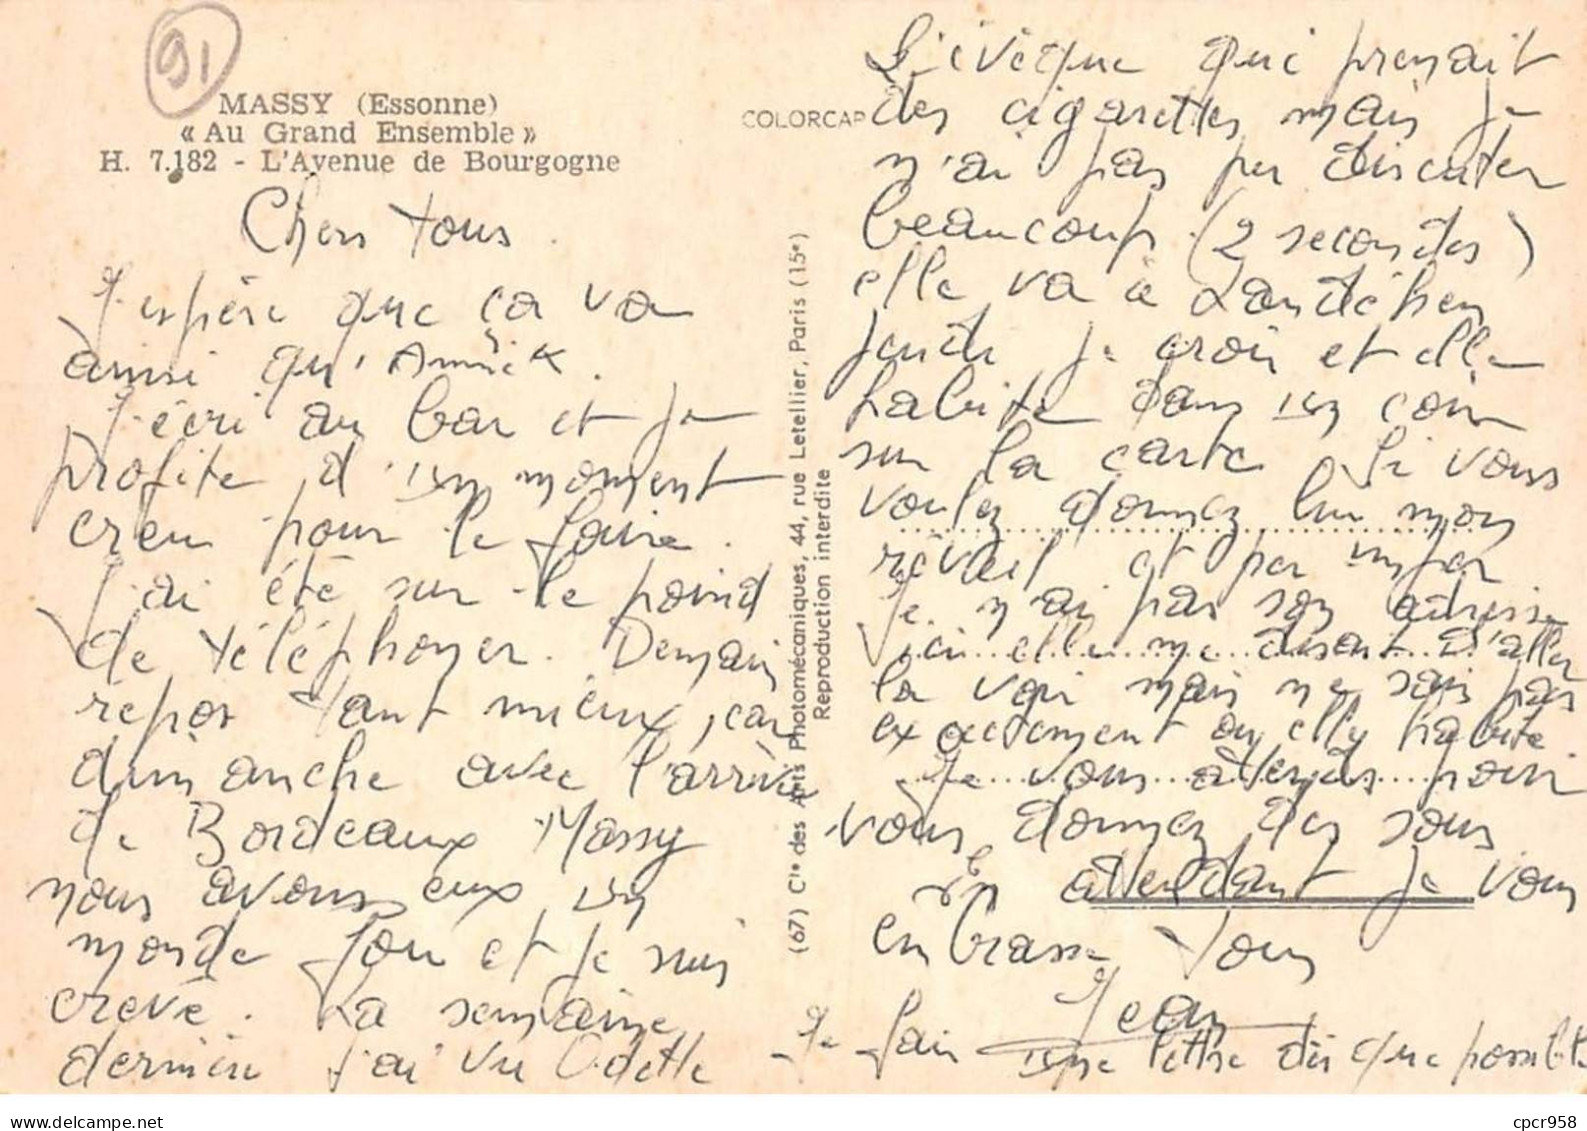 91
MASSY (Essonne)
« Au Grand Ensemble »
H. 7.182 - L'Avenue de Bourgogne
COLORCAP
Chers tous.
J'espère que ça va
ainsi qu'Annick.
J'écri au bar et je
profite d'un moment
creu pour le faire.
J'ai été sur le poind
de téléphoner. Demain
repos tant mieux, car
dimanche avec l'arrivée
de Bordeaux Massy
nous avons eux un
monde fou et je suis
crevé. La semaine
dernière j'ai vu Odette
(67) Cie des Arts Photomécaniques, 44, rue Letellier, Paris (15e)
Reproduction interdite
qui prenait
des cigarettes mais je
n'ai pas pu discuter
beaucoup (2 secondes)
elle va à
jeudi je crois et elle
habite dans un coin
sur la carte. Si vous
voulez donnez lui mon
réveil et
Je n'ai pas son adresse
ici elle me disait d'aller
la voir mais ne sais pas
exactement ou elle habite
Je vous attends pour
vous donnez des sous
En attendant je vous
enbrasse tous
Jean
Je fais une lettre dès que possible
cpcr958